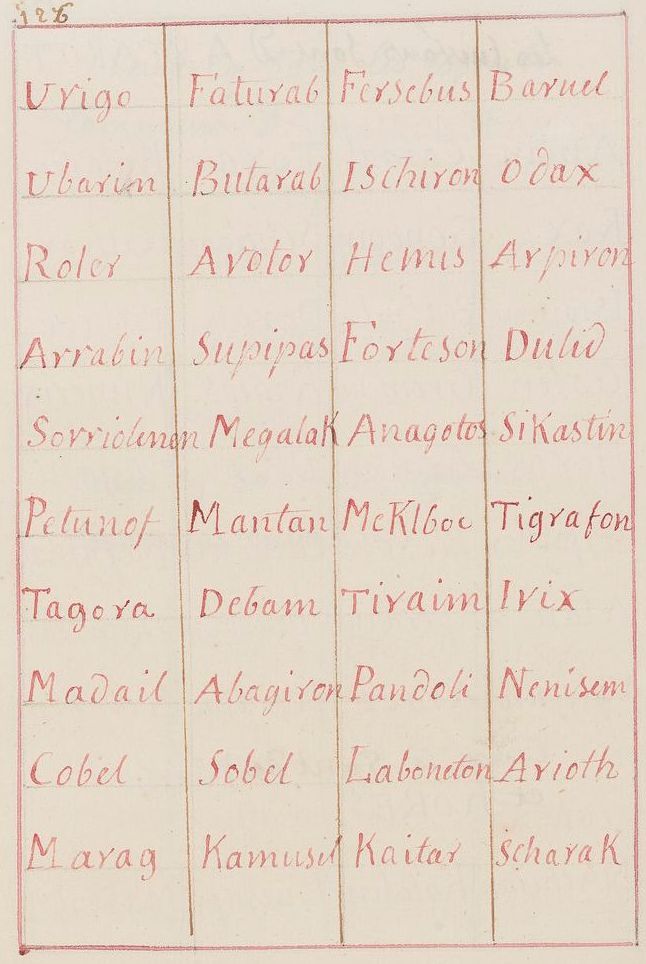 126
Urigo Faturab Fersebus Baruel
Ubarim Butarab Ischiron Odax
Roler Arotor Hemis Arpiron
Arrabin Supipas Forteson Dulid
Sorriolenen Megalak Anagotos Sikastin
Petunof Mantan Meklboc Tigrafon
Tagora Debam Tiraim Irix
Madail Abagiron Pandoli Nenisem
Cobel Sobel Laboneton Arioth
Marag Kamusil Kaitar scharak